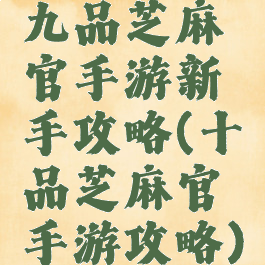 九品芝麻
官手游新
手攻略(十
品芝麻官
手游攻略)